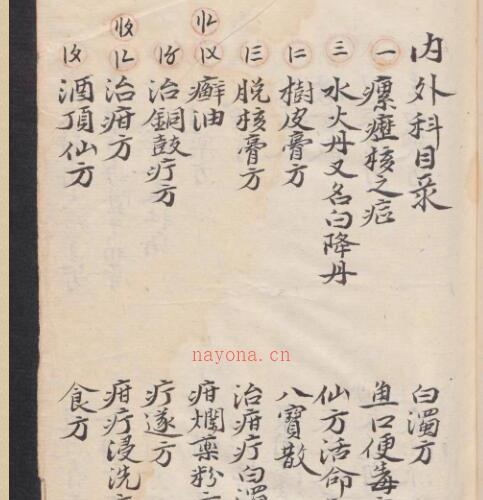 内外科目录
一 瘰癧核之症
三 水火丹又名白降丹
樹皮膏方
脱核膏方
癬油
治銅鼓疔方
治疳方
酒頂仙方
白濁方
魚口便毒
仙方活命
八寶散
治疳疔白濁
疳爛藥粉
疔遂方
疳疔浸洗方
食方
nayona.cn